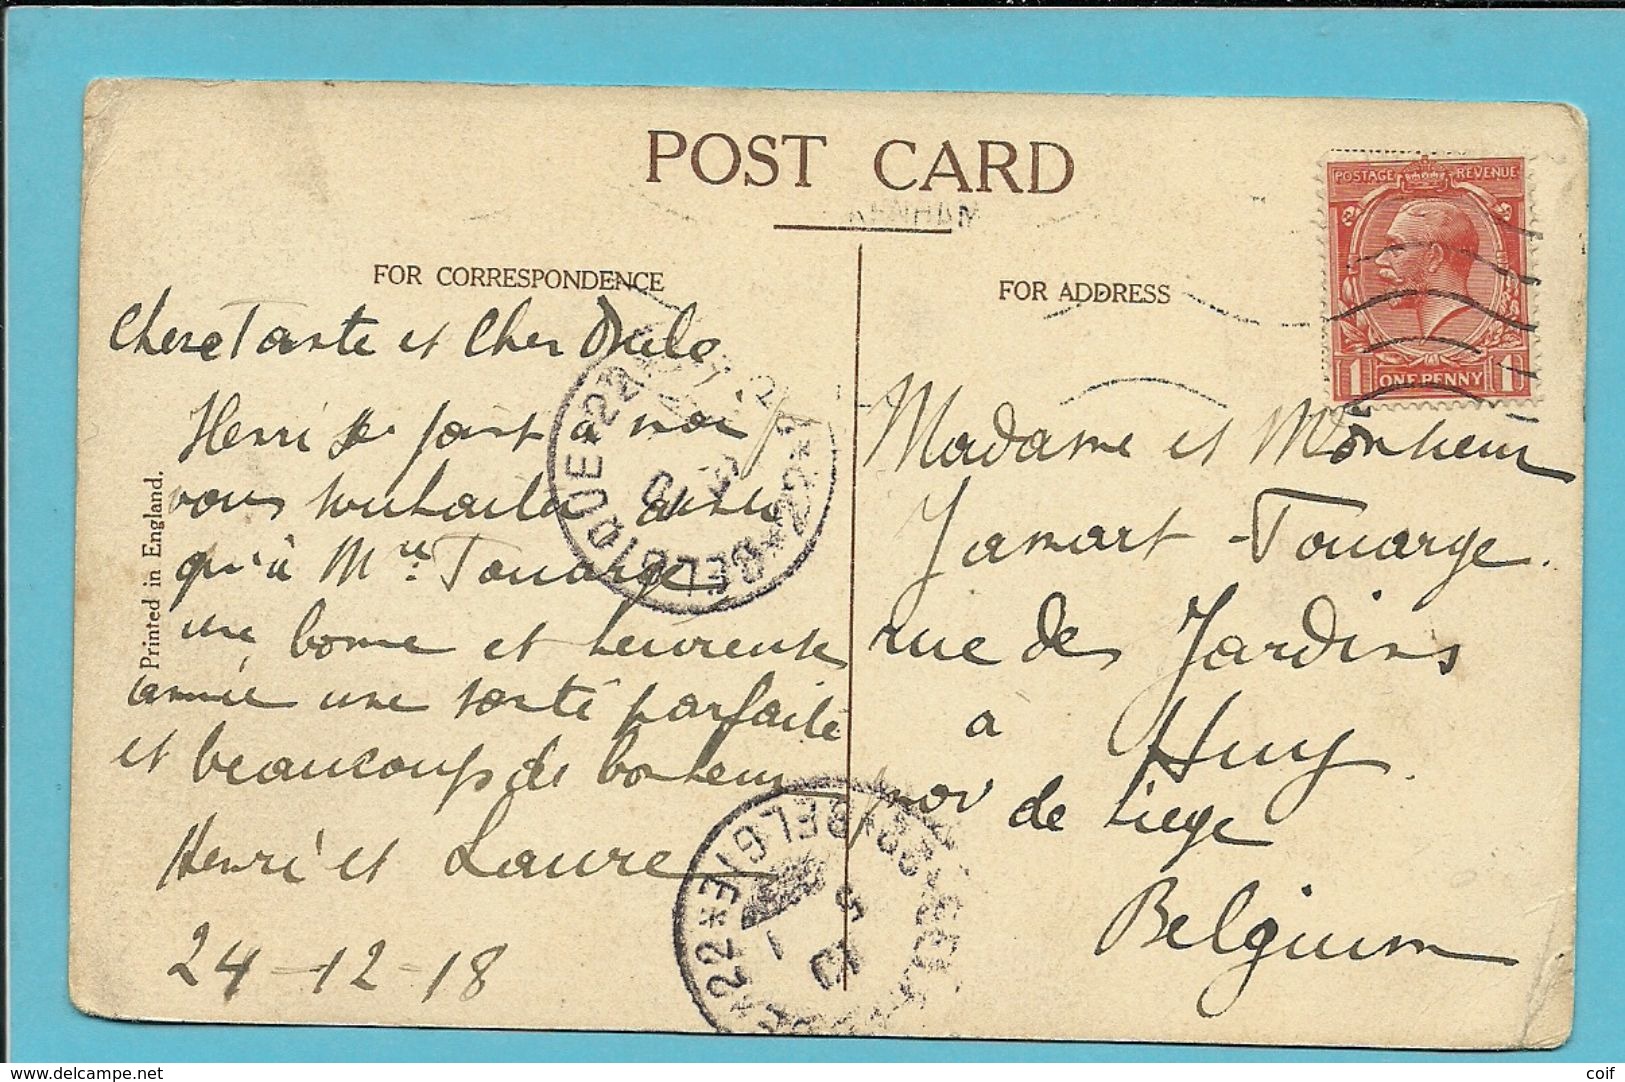 POST CARD
FOR CORRESPONDENCE
FOR ADDRESS
POSTAGE REVENUE
1 ONE PENNY 1
Chere Tante et Cher Oncle
Henri se joint à moi
vous souhaiter ainsi
qu'à Mlle Touarge
une bonne et heureuse
année une santé parfaite
et beaucoup de bonheur
Henri et Laure
24-12-18
Printed in England.
Madame et Monsieur
Jamart-Touarge.
rue des Jardins
à Huy.
prov de Liege
Belgium
22 BELGIQUE 22
22 BELGIE 22
www.delcampe.net
coif